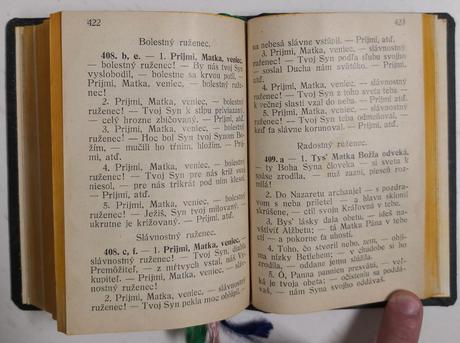 422
Bolestný ruženec.
408. b, e. — 1. Prijmi, Matka, veniec,
— bolestný ruženec! — By nás tvoj Syn
vyslobodil, — bolestne sa krvou potil. —
Prijmi, Matka, veniec, — bolestný ruže-
nec!
2. Prijmi, Matka, veniec, — bolestný
ruženec! — Tvoj Syn k stĺpu poviazaný,
— celý hrozne zbičovaný. — Prijmi, atď.
3. Prijmi, Matka, veniec, — bolestný
ruženec! — Hoc bol Synom tvoj Synom
— mučili ho tŕním, hložím. — Prijmi,
atď.
4. Prijmi, Matka, veniec, — bolestný
ruženec! — Tvoj Syn pre nás kríž svoj
niesol, — pre nás trikrát pod ním klesol.
— Prijmi, atď.
5. Prijmi, Matka, veniec, — bolestný
ruženec! — Ježiš, Syn tvoj milovaný, —
ukrutne je križovaný. — Prijmi, atď.
Slávnostný ruženec.
408. c, f. — 1. Prijmi, Matka, veniec,
— slávnostný ruženec! — Tvoj Syn, drahý
Premôžiteľ, — z mŕtvych vstal, náš Vy-
kupiteľ. — Prijmi, Matka, veniec, — sláv-
nostný ruženec!
2. Prijmi, Matka, veniec, — slávnostný
ruženec! — Tvoj Syn pekla moc
423
na nebesá slávne vstúpil. — Prijmi, atď.
3. Prijmi, Matka, veniec, — slávnostný
ruženec! — Tvoj Syn podľa sľubu svojho,
— soslal Ducha nám svätého. — Prijmi,
atď.
4. Prijmi, Matka, veniec, — slávnostný
ruženec! — Tvoj Syn z toho sveta teba —
k večnej slasti vzal do neba. — Prijmi, atď.
5. Prijmi, Matka, veniec, — slávnostný
ruženec! — Tvoj Syn teba odmeňoval, —
keď ťa slávne korunoval. — Prijmi, atď.
Radostný ruženec.
409. a — 1. Tys' Matka Božia odveká,
— ty Boha Syna človeka — si sveta k
spáse zrodila, — nuž zazni, pieseň roz-
milá!
2. Do Nazaretu archanjel — s pozdra-
vom s neba priletel — a hlavu skloniil
skrúšene, — ctil svoju Kráľovnú v tebe.
3. Bys' lásky dala obetu, — ideš na-
vštíviť Alžbetu; — tá Matku Pána v tebe
ctí — a pokorne ťa uhostí.
4. Toho, čo stvoril nebo, zem, —
ty nízky Betlehem; — v chudobe si ho
zrodila, — oddane jemu slúžila.
5. Ó, Panna pannien presvätá, — veľ-
ká je tvoja obeta; — očisteniu sa poddá-
vaš, — nám Syna svojho oddávaš.